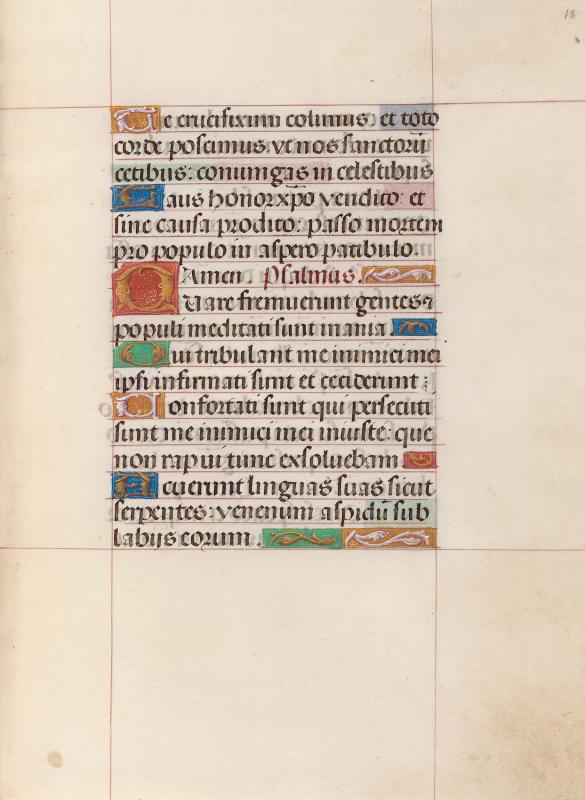 18
Te crucifixum colimus: et toto
corde poscimus. vt nos sanctorū
cetibus: coniungas in celestibus
Laus honor xp̄o vendito: et
sine causa prodito: passo mortem
pro populo in aspero patibulo.
Amen Psalmus.
Quare fremuerunt gentes: ⁊
populi meditati sunt inania
Qui tribulant me inimici mei
ipsi infirmati sunt et ceciderunt:
Confortati sunt qui persecuti
sunt me inimici mei iniuste: que
non rapui tunc exsoluebam.
Acuerunt linguas suas sicut
serpentes: venenum aspidū sub
labijs eorum.